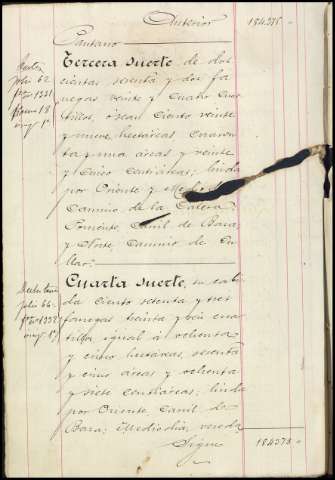 Anterior 184375 -
Pantano
Tercera Suerte, de dos
cientas setenta y dos fa
negas veinte y cuatro cuar
tillos, ó sean ciento veinte
y nueve hectáreas cuaren
ta y una áreas y veinte
y cinco centiáreas; linda
por Oriente y Medio
Camino de la
Poniente, Canil de Bara
y Norte, camino de Cu
llar.
folio 62
Cuarta Suerte, su cabi
da ciento setenta y tres
fanegas treinta y seis cua
tillos, igual á ochenta
y cinco hectáreas, sesenta
y cinco áreas y ochenta
y siete centiáreas; linda
por Oriente Canil de
Bara; Mediodía, vereda
folio 66
Sigue 184375 -